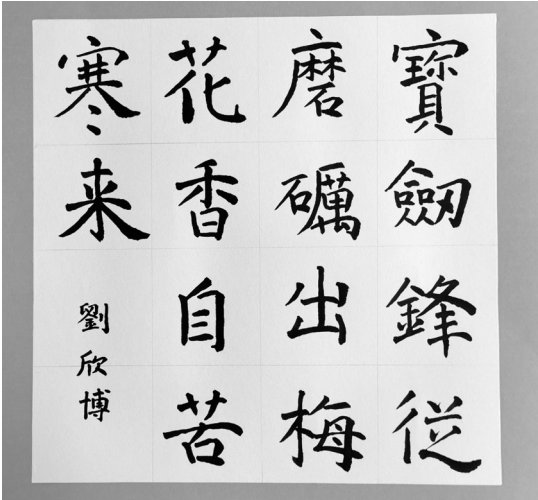 寶劔鋒従
磨礪出梅
花香自苦
寒来
劉欣博